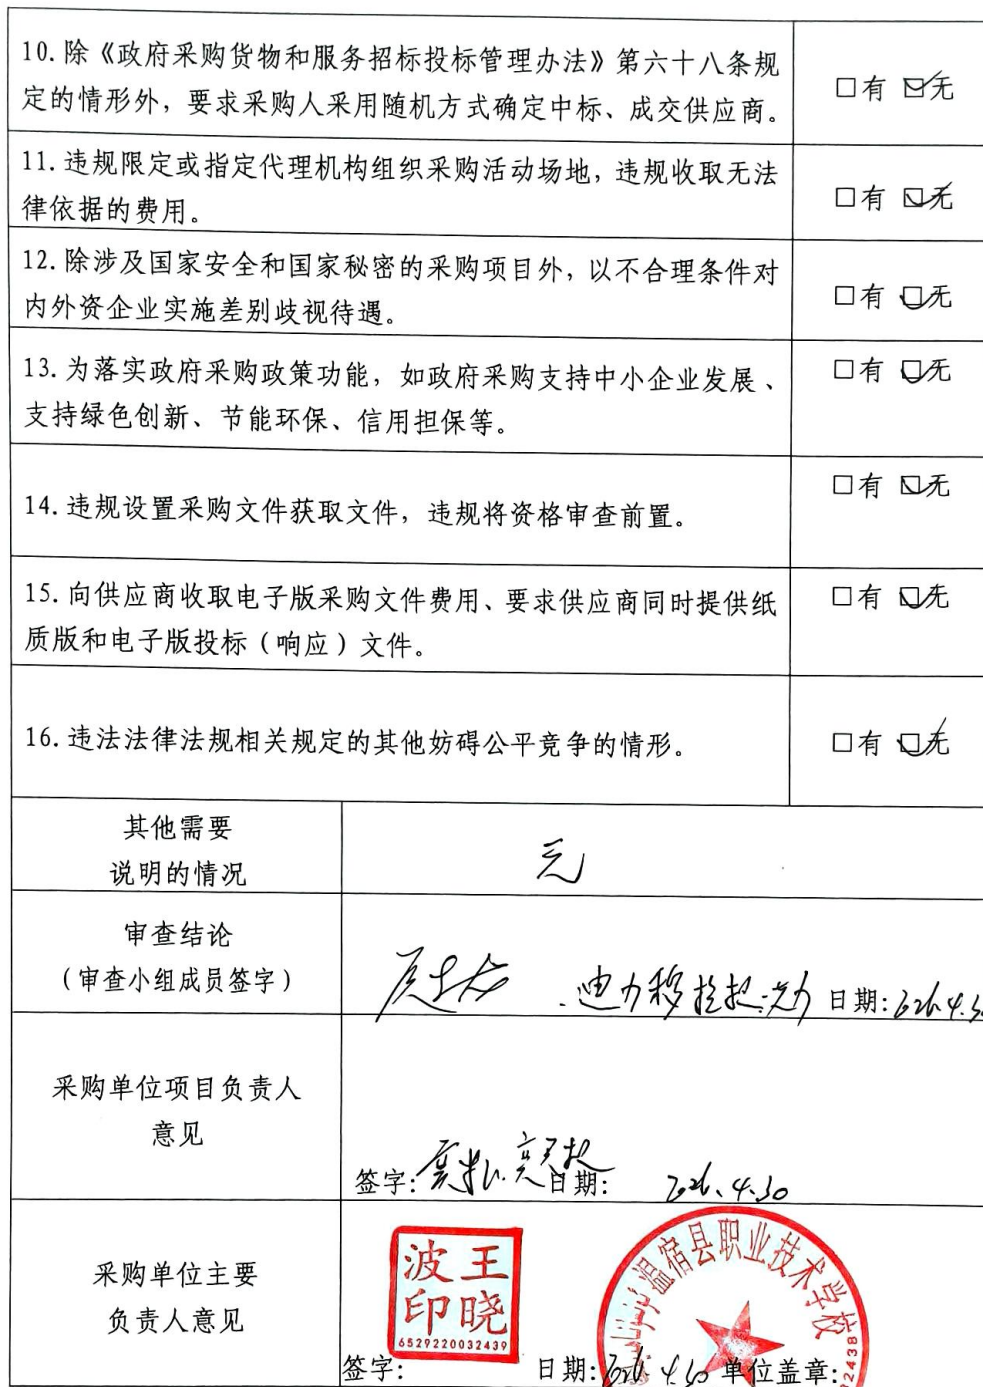 10.除《政府采购货物和服务招标投标管理办法》第六十八条规
定的情形外，要求采购人采用随机方式确定中标、成交供应商。
□有 ☑无
11.违规限定或指定代理机构组织采购活动场地，违规收取无法
律依据的费用。
□有 ☑无
12.除涉及国家安全和国家秘密的采购项目外，以不合理条件对
内外资企业实施差别歧视待遇。
□有 ☑无
13.为落实政府采购政策功能，如政府采购支持中小企业发展、
支持绿色创新、节能环保、信用担保等。
□有 ☑无
14.违规设置采购文件获取文件，违规将资格审查前置。
□有 ☑无
15.向供应商收取电子版采购文件费用、要求供应商同时提供纸
质版和电子版投标（响应）文件。
□有 ☑无
16.违法法律法规相关规定的其他妨碍公平竞争的情形。
□有 ☑无
其他需要
说明的情况
无
审查结论
（审查小组成员签字）
迪力移拉提 日期:2026.4.30
采购单位项目负责人
意见
签字: 日期: 2026.4.30
采购单位主要
负责人意见
王晓波印
6529220032439
温宿县职业技术学校
签字: 日期:2026.4.30 单位盖章: